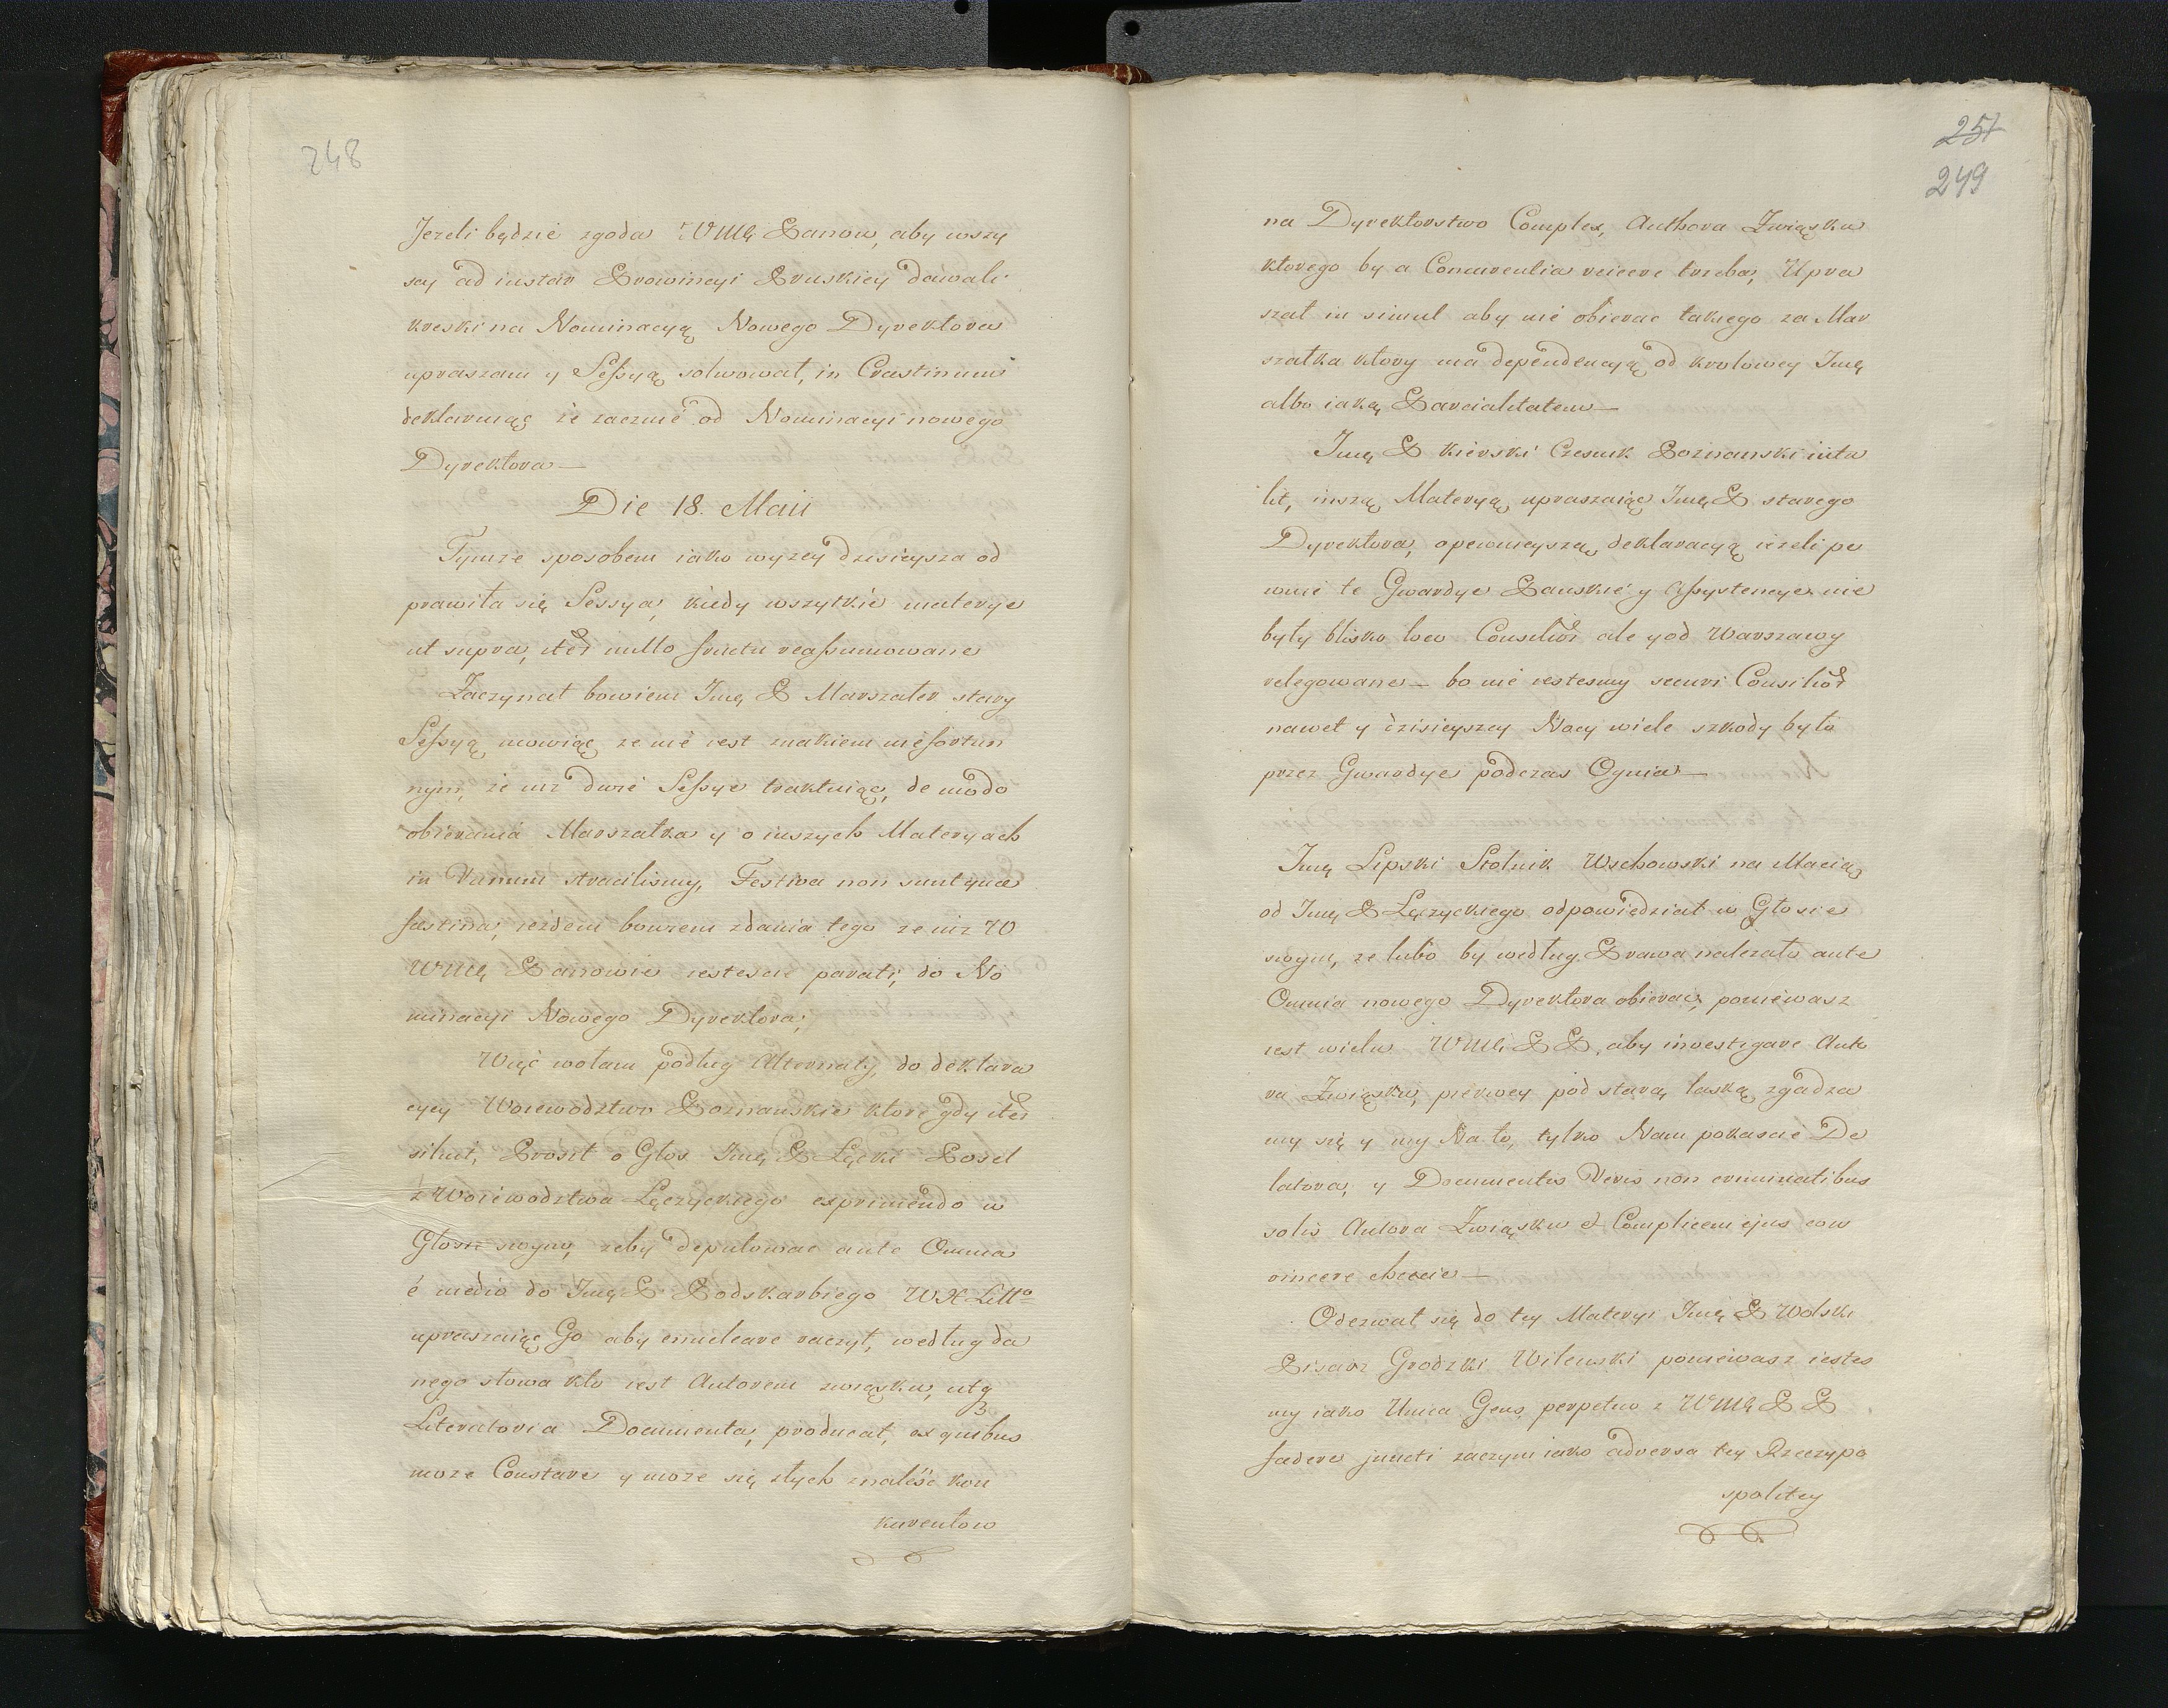 248
Jezeli będzie zgoda WMę Panow, aby wszy
scy ad instar Prowincyi Pruskiey dawali
kreski na Nominacyą Nowego Dyrektora
upraszam y Seſsyą solwował, in Crastinum
deklaruiąc że zacznie od Nominacyi nowego
Dyrektora —
Die 18. Maii
Tymże sposobem iako wyzey dzisieysza od
prawiła się Sessya, kiedy wszytkie materye
ut supra, iter nullo fructu reaſsumowane
Zaczynał bowiem Jmę P Marszałek stary
Seſsyą mowiąc ze nie iest znakiem niefortun
nym, że iuz dwie Seſsye traktuiąc, de modo
obierania Marszałka y o inszych Materyach
in Vanum straciliśmy, Festiva non sunt quæ
festina, iezdem bowiem zdania tego ze iuz
WMę Panowie iestescie parati, do No
minacyi Nowego Dyrektora;
Więc wołam podług Alternaty, do deklara
cyey Woiewodztwo Poznanskie ktore gdy iter
siluit, Prosił o Głos Jmę P Łącki Poseł
z Woiewodztwa Łęczyckiego exprimendo w
Głosie swym, żeby deputowac ante Omnia
é medio do Jmę P Podskarbiego WX Litto
upraszaiąc Go aby enucleare raczył, według da
nego słowa kto iest Autorem związku, utq
Literatoria Documenta, producat, ex quibus
moze Constare y moze się z tych znaleść kon
kurentow
251
249
na Dyrektorstwo Complex, Authora Związku
ktorego by a Concurentia reiicere trzeba, Upra
szał in simul aby nie obierac takiego za Mar
szałka ktory ma dependencyą od krolowey Jmę
albo iaką Parcialitatem —
Jmę P Kierski Czesnik Poznanski intu
lit, inszą Materyą, upraszaiąc Jmę P starego
Dyrektora, o pewnieyszą, deklaracyą ieżeli pe
wnie te Gwardye Panskie y Aſsystencye nie
były blisko loco Consilior ale y od Warszawy
relegowane — bo nie iestesmy securi Consilior
nawet y dzisieyszey Nocy wiele szkody było
przez Gwardye podczas Ognia —
Jmę Lipski Stolnik Wschowski na Macią
od Jmę P Łęczyckiego odpowiedział w Głosie
swym, ze lubo by według Prawa należało ante
Omnia nowego Dyrektora obierac, poniewasz
iest wielu WMę P P, aby investigare Auto
ra Związku, pierwey pod starą laską zgadza
my się y my Na to, tylko Nam pokascie De
latora, y Documentis Veris non criminatibus
solis Autora Związku et Complicem ejus con
vincere chcecie —
Odezwał się do tey Materyi Jmę P Wolski
Pisarz Grodzki Wilenski poniewasz iestes
my iako Unica Gens perpetuo z WMę P P
fædere juncti zaczym iako adversa tey Rzeczypo
spolitey